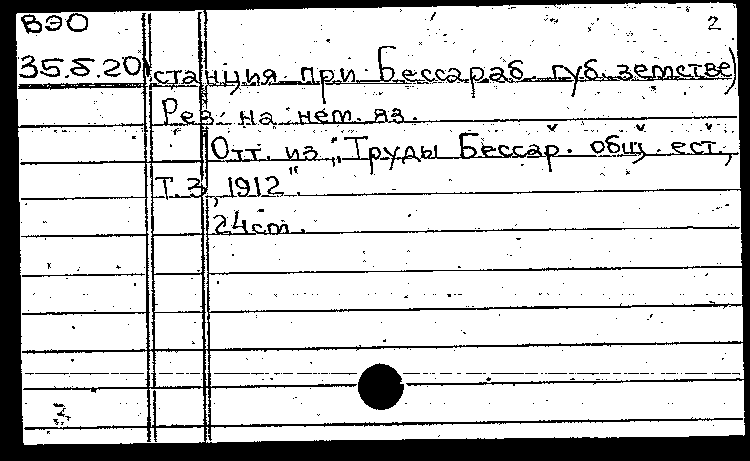 ВЭО 2
35.б.20 станция при Бессараб. губ. земстве)
Рез. на нем. яз.
Отт. из „Труды Бессар. общ. ест.,
Т. 3, 1912".
24 cm.
3